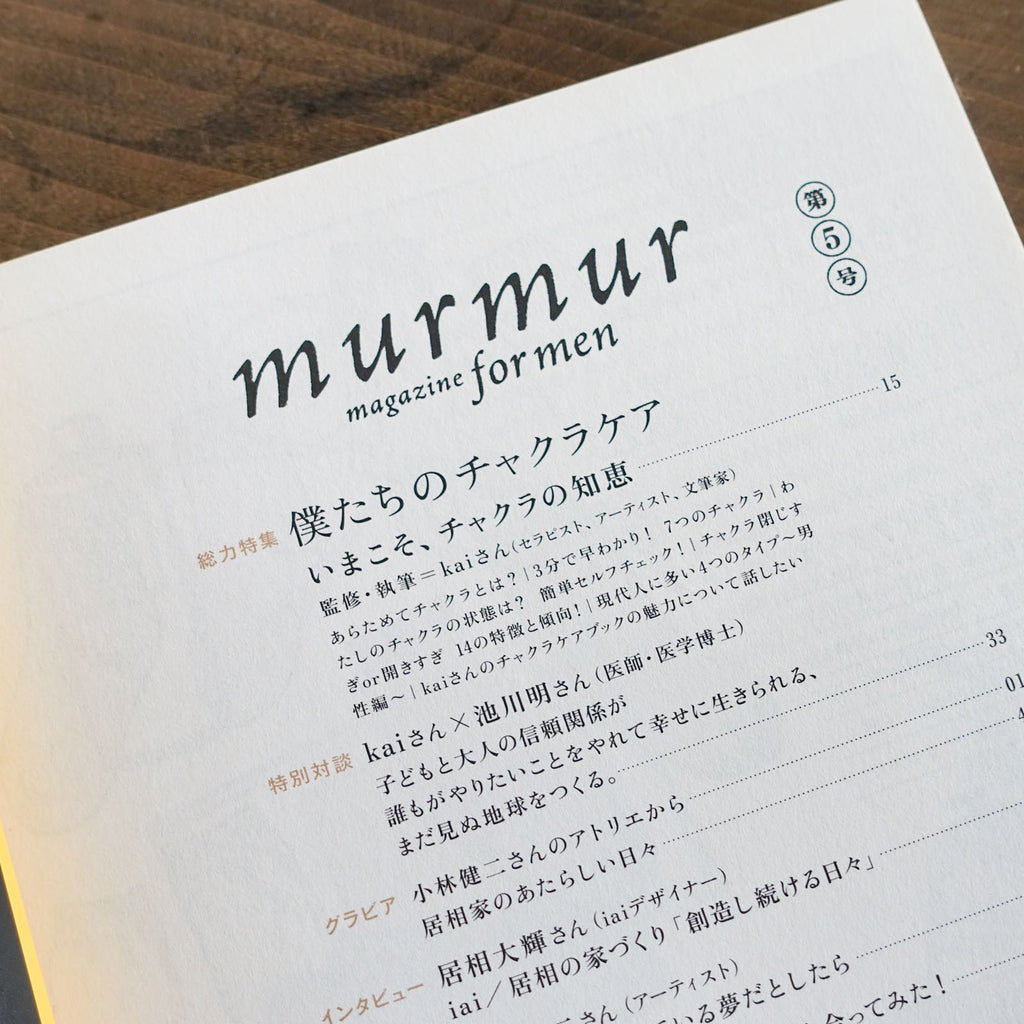 murmur
magazine for men
第5号
総力特集
僕たちのチャクラケア
いまこそ、チャクラの知恵 15
監修・執筆=kaiさん(セラピスト、アーティスト、文筆家)
あらためてチャクラとは?|3分で早わかり! 7つのチャクラ|わ
たしのチャクラの状態は? 簡単セルフチェック!|チャクラ閉じす
ぎor開きすぎ 14の特徴と傾向!|現代人に多い4つのタイプ〜男
性編〜|kaiさんのチャクラケアブックの魅力について話したい
特別対談
kaiさん×池川明さん(医師・医学博士)
子どもと大人の信頼関係が
誰もがやりたいことをやれて幸せに生きられる、
まだ見ぬ地球をつくる。 33
グラビア
小林健二さんのアトリエから 01
居相家のあたらしい日々 4
インタビュー
居相大輝さん(iaiデザイナー)
iai/居相の家づくり「創造し続ける日々」
さん(アーティスト)
いる夢だとしたら
会ってみた!